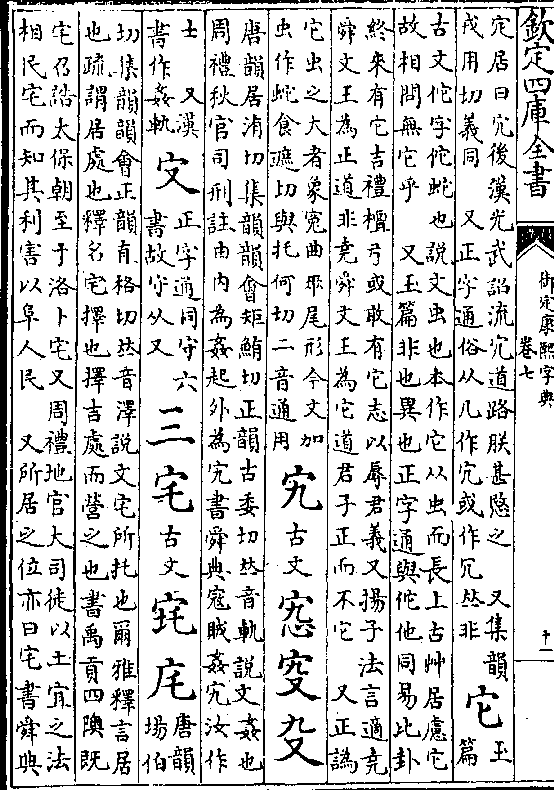 欽定四庫全書
御定康熙字典
卷七
十一
定居曰宂後漢光武詔流宂道路朕甚愍之 又集韻
戎用切義同 又正字通俗从几作宂或作冗𠀤非
它
玉
篇
古文佗字佗蛇也說文虫也本作它从虫而長上古艸居慮它
故相問無它乎 又玉篇非也異也正字通與佗他同易比卦
終來有它吉禮檀弓或敢有它志以辱君義又揚子法言適堯
舜文王為正道非堯舜文王為它道君子正而不它 又正譌
它虫之大者象宛曲𠂹尾形今文加
虫作蛇食遮切與托何切二音通用
宄古文
唐韻居洧切集韻韻會矩鮪切正韻古委切𠀤音軌說文姦也
周禮秋官司刑註由内為姦起外為宄書舜典寇賊姦宄汝作
士 又漢
書作姦軌
㝊
正字通同守六
書故守从又
三
宅古文
㡯
唐韻
場伯
切集韻韻會正韻直格切𠀤音澤說文宅所托也爾雅釋言居
也疏謂居處也釋名宅擇也擇吉處而營之也書禹貢四隩既
宅召誥太保朝至于洛卜宅又周禮地官大司徒以土宜之法
相民宅而知其利害以阜人民 又所居之位亦曰宅書舜典